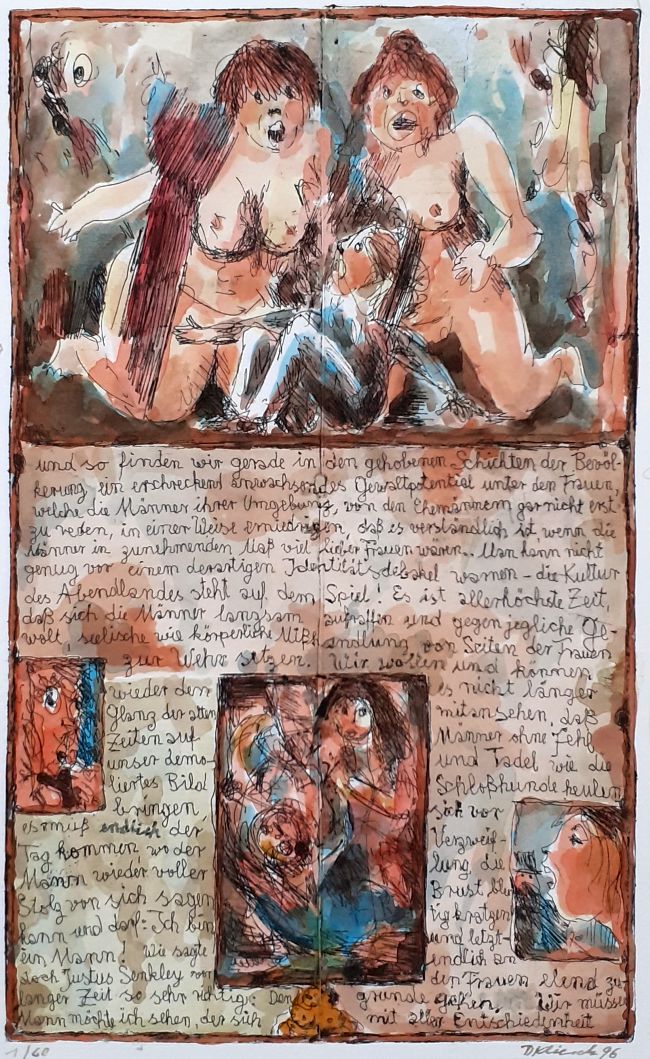 und so finden wir gerade in den gehobenen Schichten der Bevöl-
kerung ein erschreckend anwachsendes Gewaltpotential unter den Frauen,
welche die Männer ihrer Umgebung, von den Ehemännern gar nicht erst
zu reden, in einer Weise erniedrigen, daß es verständlich ist, wenn die
Männer in zunehmenden Maß viel lieber Frauen wären.. Man kann nicht
genug vor einem derartigen Identitätsdebakel warnen – die Kultur
des Abendlandes steht auf dem Spiel! Es ist allerhöchste Zeit,
daß sich die Männer langsam aufraffen und gegen jegliche Ge-
walt, seelische wie körperliche Mißhandlung von Seiten der Frauen
zur Wehr setzen. Wir wollen und können
es nicht länger
mitansehen, daß
Männer ohne Fehl
und Tadel wie die
Schloßhunde heulen
sich vor
Verzweif-
lung die
Brust blu-
tig kratzen
und letzt-
endlich an
den Frauen elend zu-
grunde gehen. Wir müssen
mit aller Entschiedenheit
wieder den
Glanz der alten
Zeiten auf
unser demo-
liertes Bild
bringen,
es muß endlich der
Tag kommen wo der
Mann wieder voller
Stolz von sich sagen
kann und darf: Ich bin
ein Mann. Wie sagte
doch Justus Senkley vor
langer Zeit so sehr richtig: Den
Mann möchte ich sehen, der sich
1/60
96